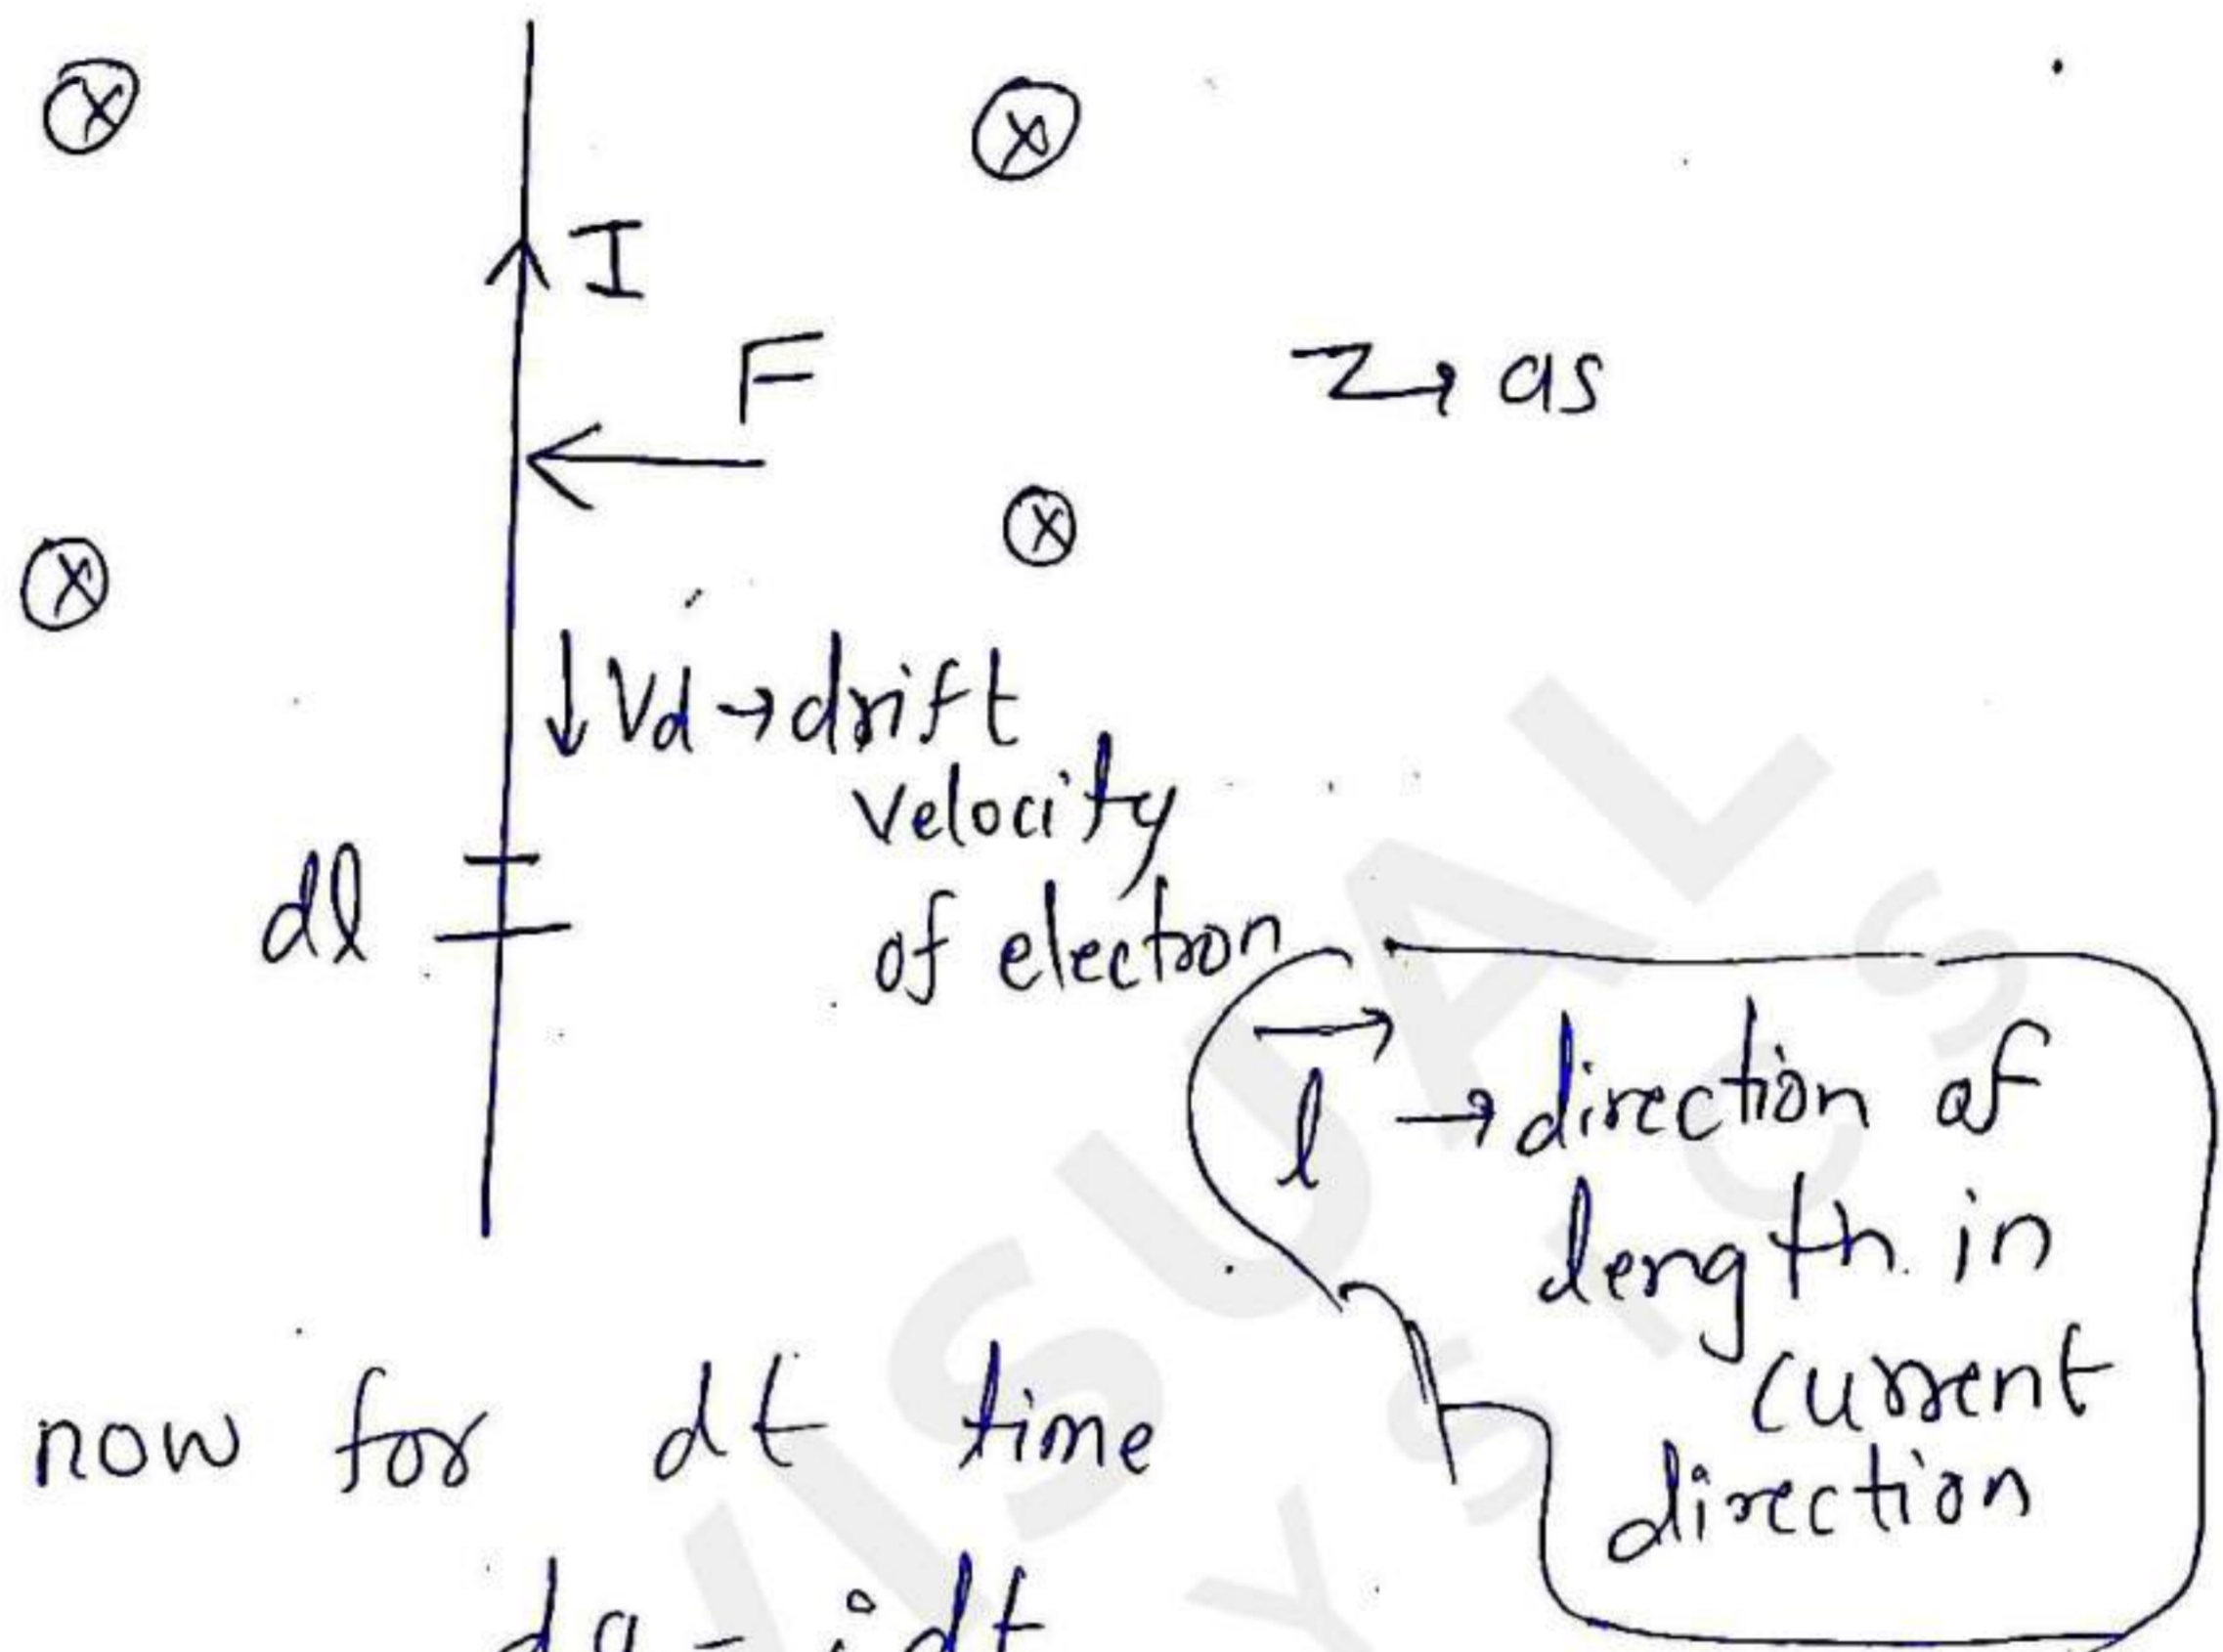 ⓧ ⓧ
I
F
Z → as
ⓧ ⓧ
↓ Vd → drift
velocity
of electron
dl
l → direction of
length in
current
direction
now for dt time
dq = idt
VISUAL